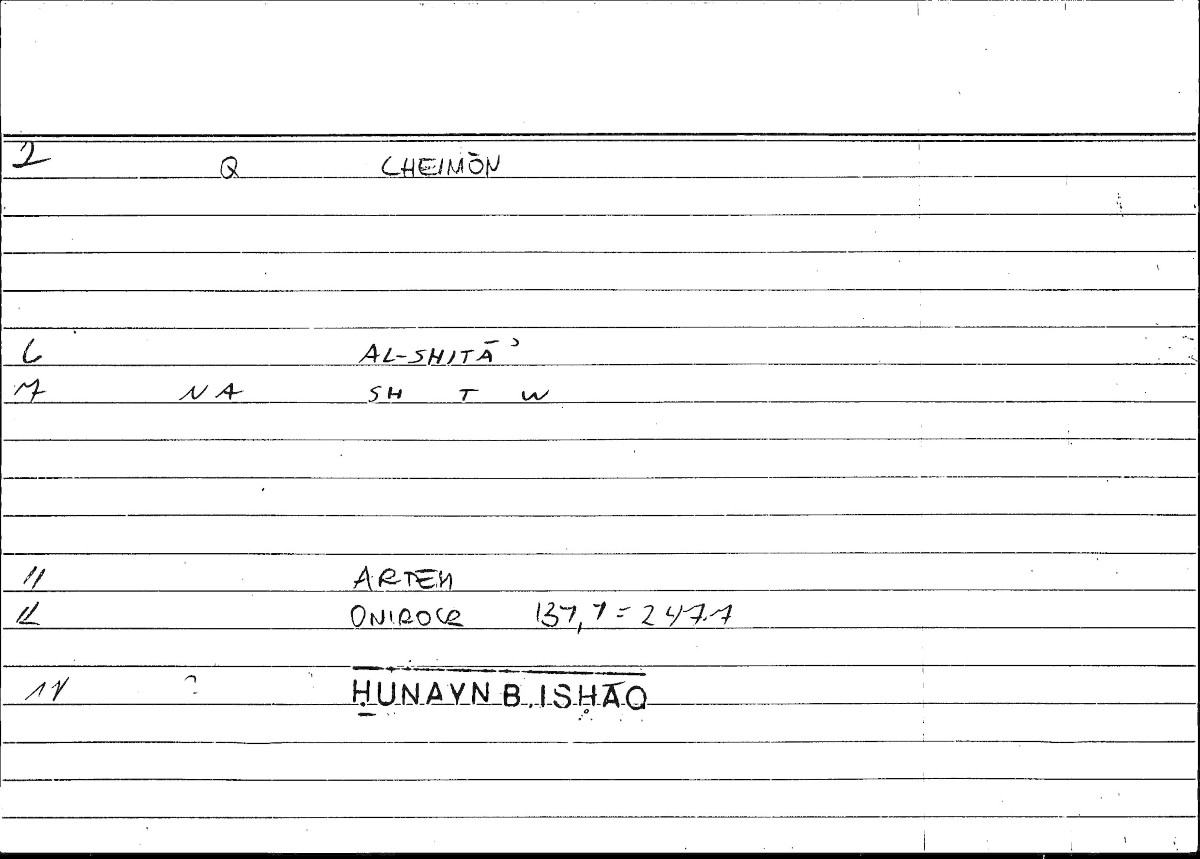 2 Q CHEIMŌN
6 AL-SHITĀʾ
7 NA SH T W
11 ARTEM
12 ONIROCR 137,7 = 247.7
14 ? ḤUNAYN B. ISḤĀQ